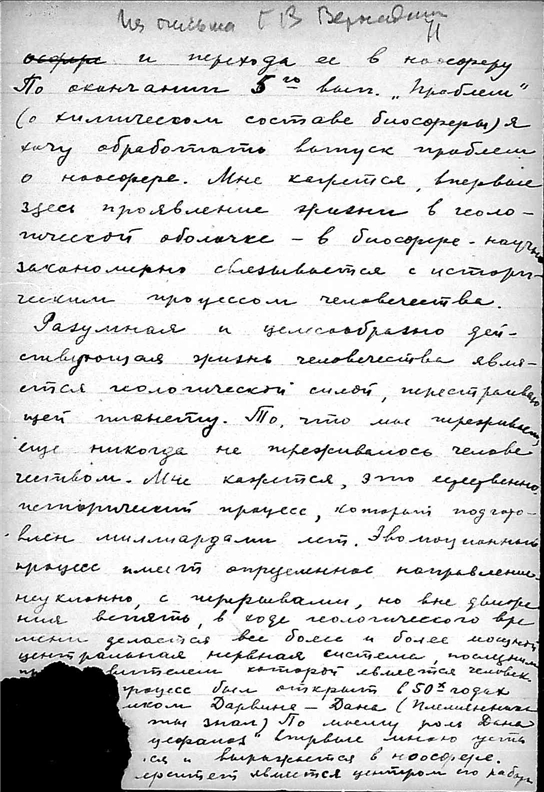 Из письма Г В Вернадск
11
и перехода ее в ноосферу
По окончании 5го вып. „Проблем"
(о химическом составе биосферы) я
хочу обработать выпуск проблем
о ноосфере. Мне кажется, впервые
здесь проявление жизни в геоло-
гической оболочке – в биосфере - научно
закономерно связывается с истори-
ческим процессом человечества.
Разумная и целесообразно дей-
ствующая жизнь человечества явля-
ется геологической силой, перестраиваю
щей планету. То, что мы переживаем,
еще никогда не переживалось челове
чеством. Мне кажется, это естественно-
исторический процесс, который подгото-
влен миллиардами лет. Эволюционный
процесс имеет определенное направление
неуклонно, с перерывами, но вне движе
ния вспять, в ходе геологического вре
мени делается все более и более мощной
центральная нервная система, последним
которой является человек
роцесс был открыт в 50х годах
Дарвина – Дана (
ты знал) По моему роль Дана
впервые мною
ся и выражается в ноосфере.
является центром его